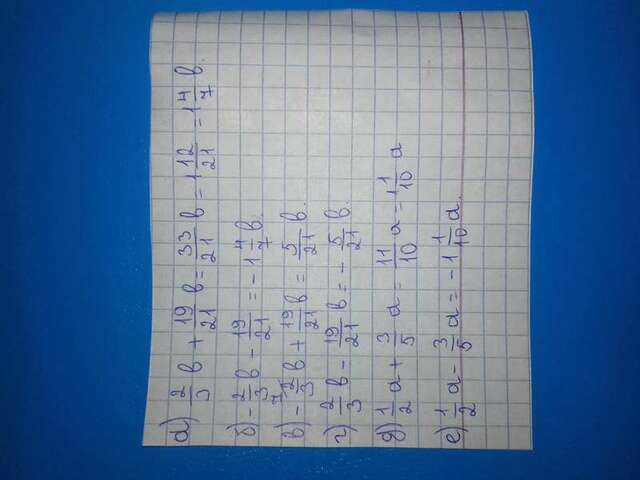 а) 2/3 в + 19/21 в = 33/21 в = 1 12/21 = 1 4/7 в.
б) - 2/3 в - 19/21 = - 1 4/7 в.
в) - 2/3 в + 19/21 в = 5/21 в.
г) 2/3 в - 19/21 в = - 5/21 в.
д) 1/2 а + 3/5 а = 11/10 а = 1 1/10 а
е) 1/2 а - 3/5 а = - 1 1/10 а.